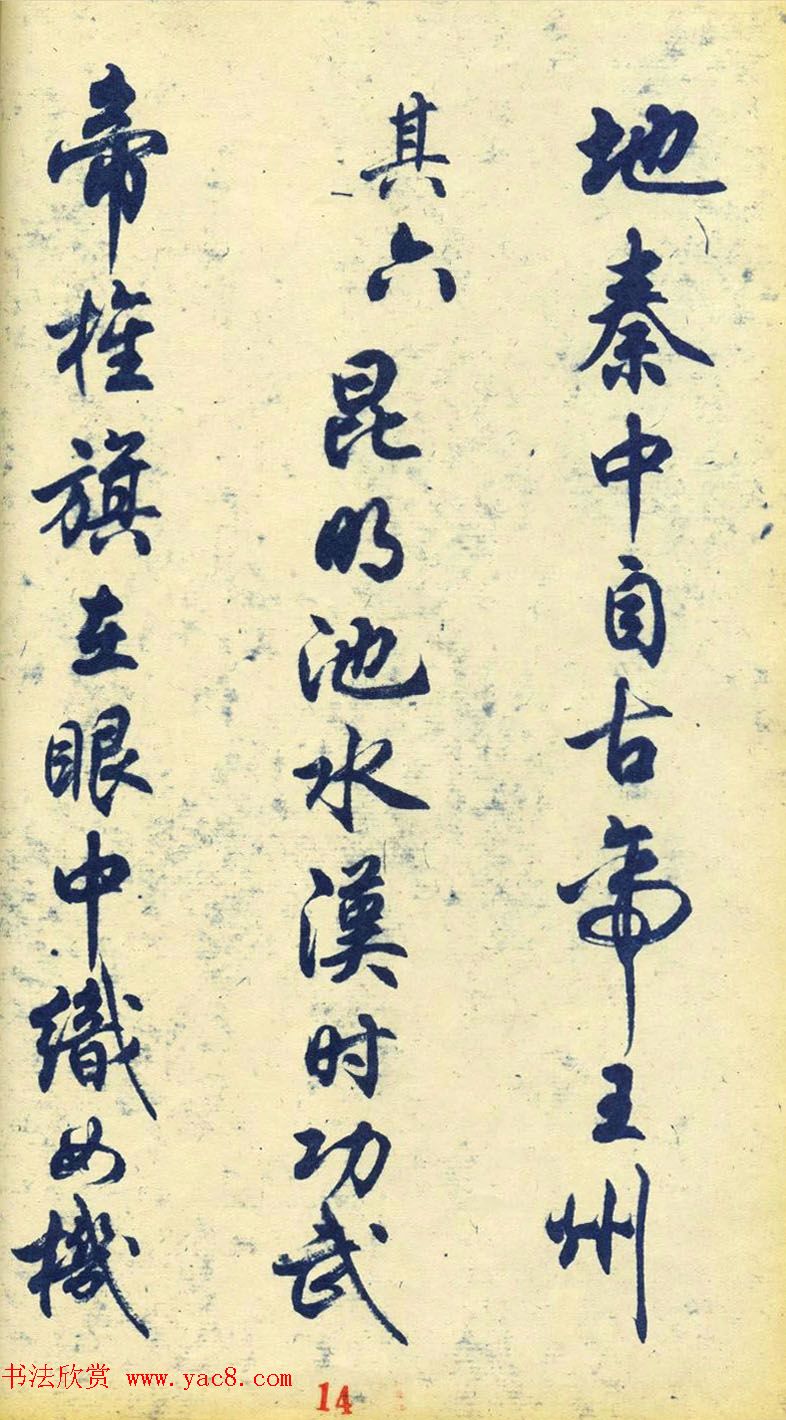 地秦中自古帝王州
其六 昆明池水漢时功武
帝旌旗在眼中織女機
书法欣赏 www.yac8.com
14